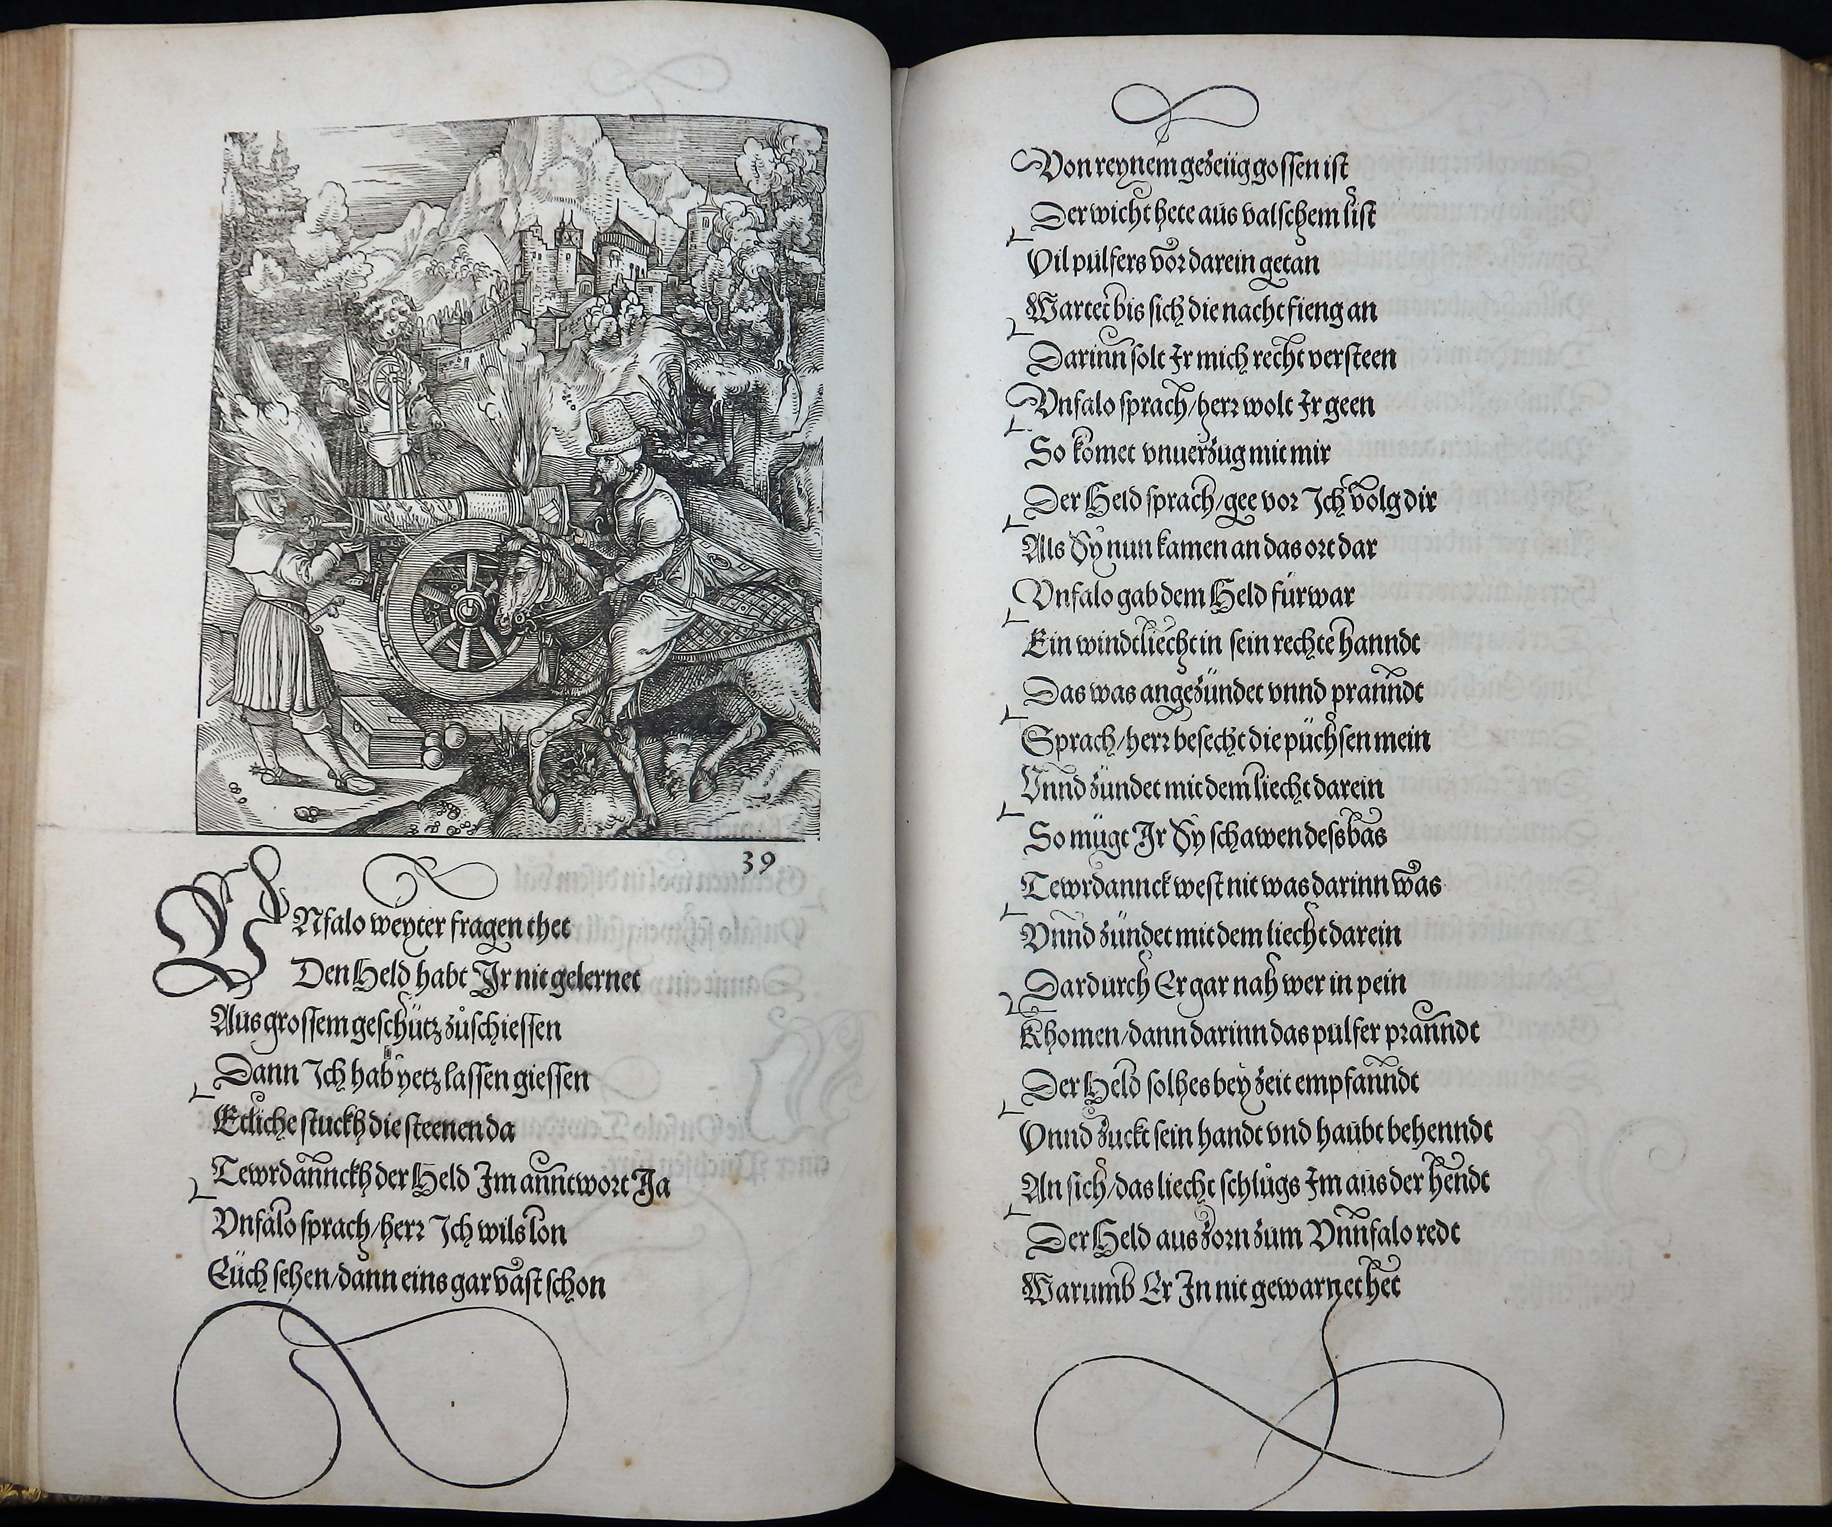 39
VNfalo weyter fragen thet
Den Held habt Jr nit gelernet
Aus grossem geschütz zůschiessen
Dann Ich hab yetz lassen giessen
Etliche stuckh die steenen da
Tewrdannckh der Held Im anntwort Ja
Vnfalo sprach/herr Ich wils lon
Eüch sehen/dann eins gar vast schon
Von reynem gezeüg gossen ist
Der wicht hete aus valschem list
Vil pulfers vor darein getan
Wartet bis sich die nacht fieng an
Darinn solt Jr mich recht versteen
Vnfalo sprach/herr wolt Jr geen
So komet vnuerzug mit mir
Der Held sprach/gee vor Ich volg dir
Als Sy nun kamen an das ort dar
Vnfalo gab dem Held fürwar
Ein windtliecht in sein rechte hanndt
Das was angezündet vnnd pranndt
Sprach/herr besecht die püchsen mein
Vnnd zündet mit dem liecht darein
So mügt Jr Sy schawen dessbas
Tewrdannck west nit was darinn was
Vnnd zündet mit dem liecht darein
Dardurch Er gar nah wer in pein
Khomen/dann darinn das pulfer pranndt
Der Held solhes bey zeit empfanndt
Vnnd zuckt sein handt vnd haubt behenndt
An sich/das liecht schlůgs Im aus der hendt
Der Held aus zorn zum Vnnfalo redt
Warumb Er In nit gewarnet het